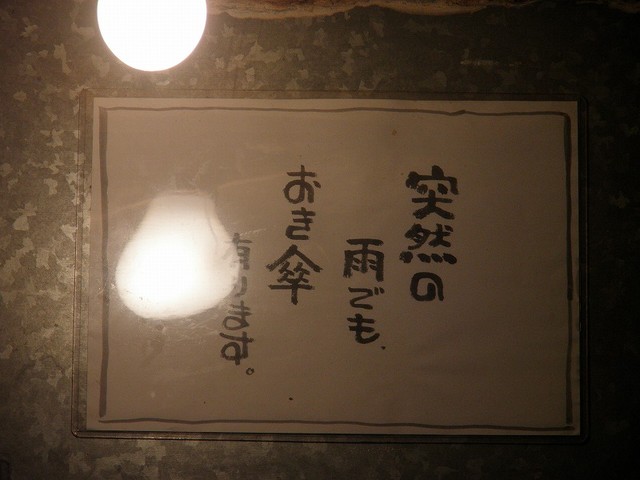 突然の
雨でも、
おき傘
有ります。